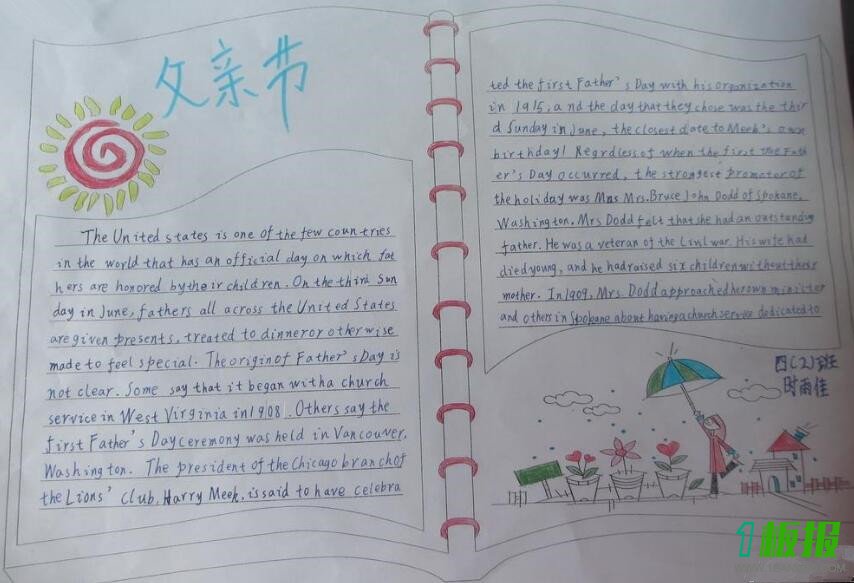 父亲节
The United states is one of the few countries
in the world that has an official day on which fat
hers are honored by their children. On the third Sun
day in June, fathers all across the United States
are given presents, treated to dinner or otherwise
made to feel special. The origin of Father's Day is
not clear. Some say that it began with a church
service in West Virginia in 1908. Others say the
first Father's Day ceremony was held in Vancouver,
Washington. The president of the Chicago branch of
the Lions' Club, Harry Meek, is said to have celebra
ted the first Father's Day with his organization
in 1915; and the day that they chose was the thir
d Sunday in June, the closest date to Meek's own
birthday! Regrdless of when the first the Fath
er's Day occurred, the strongest promotor of
the holiday was Mns Mrs. Bruce John Dodd of Spokane,
Washington. Mrs Dodd felt that she had an outstanding
father. He was a veteran of the war. His wife had
died young, and he had raised six children without their
mother. In 1909, Mrs. Dodd approached her own minister
and others in Spokane about having a church service dedicated to
四(2)班
时雨佳
1板报
WWW.1BANBAO.COM